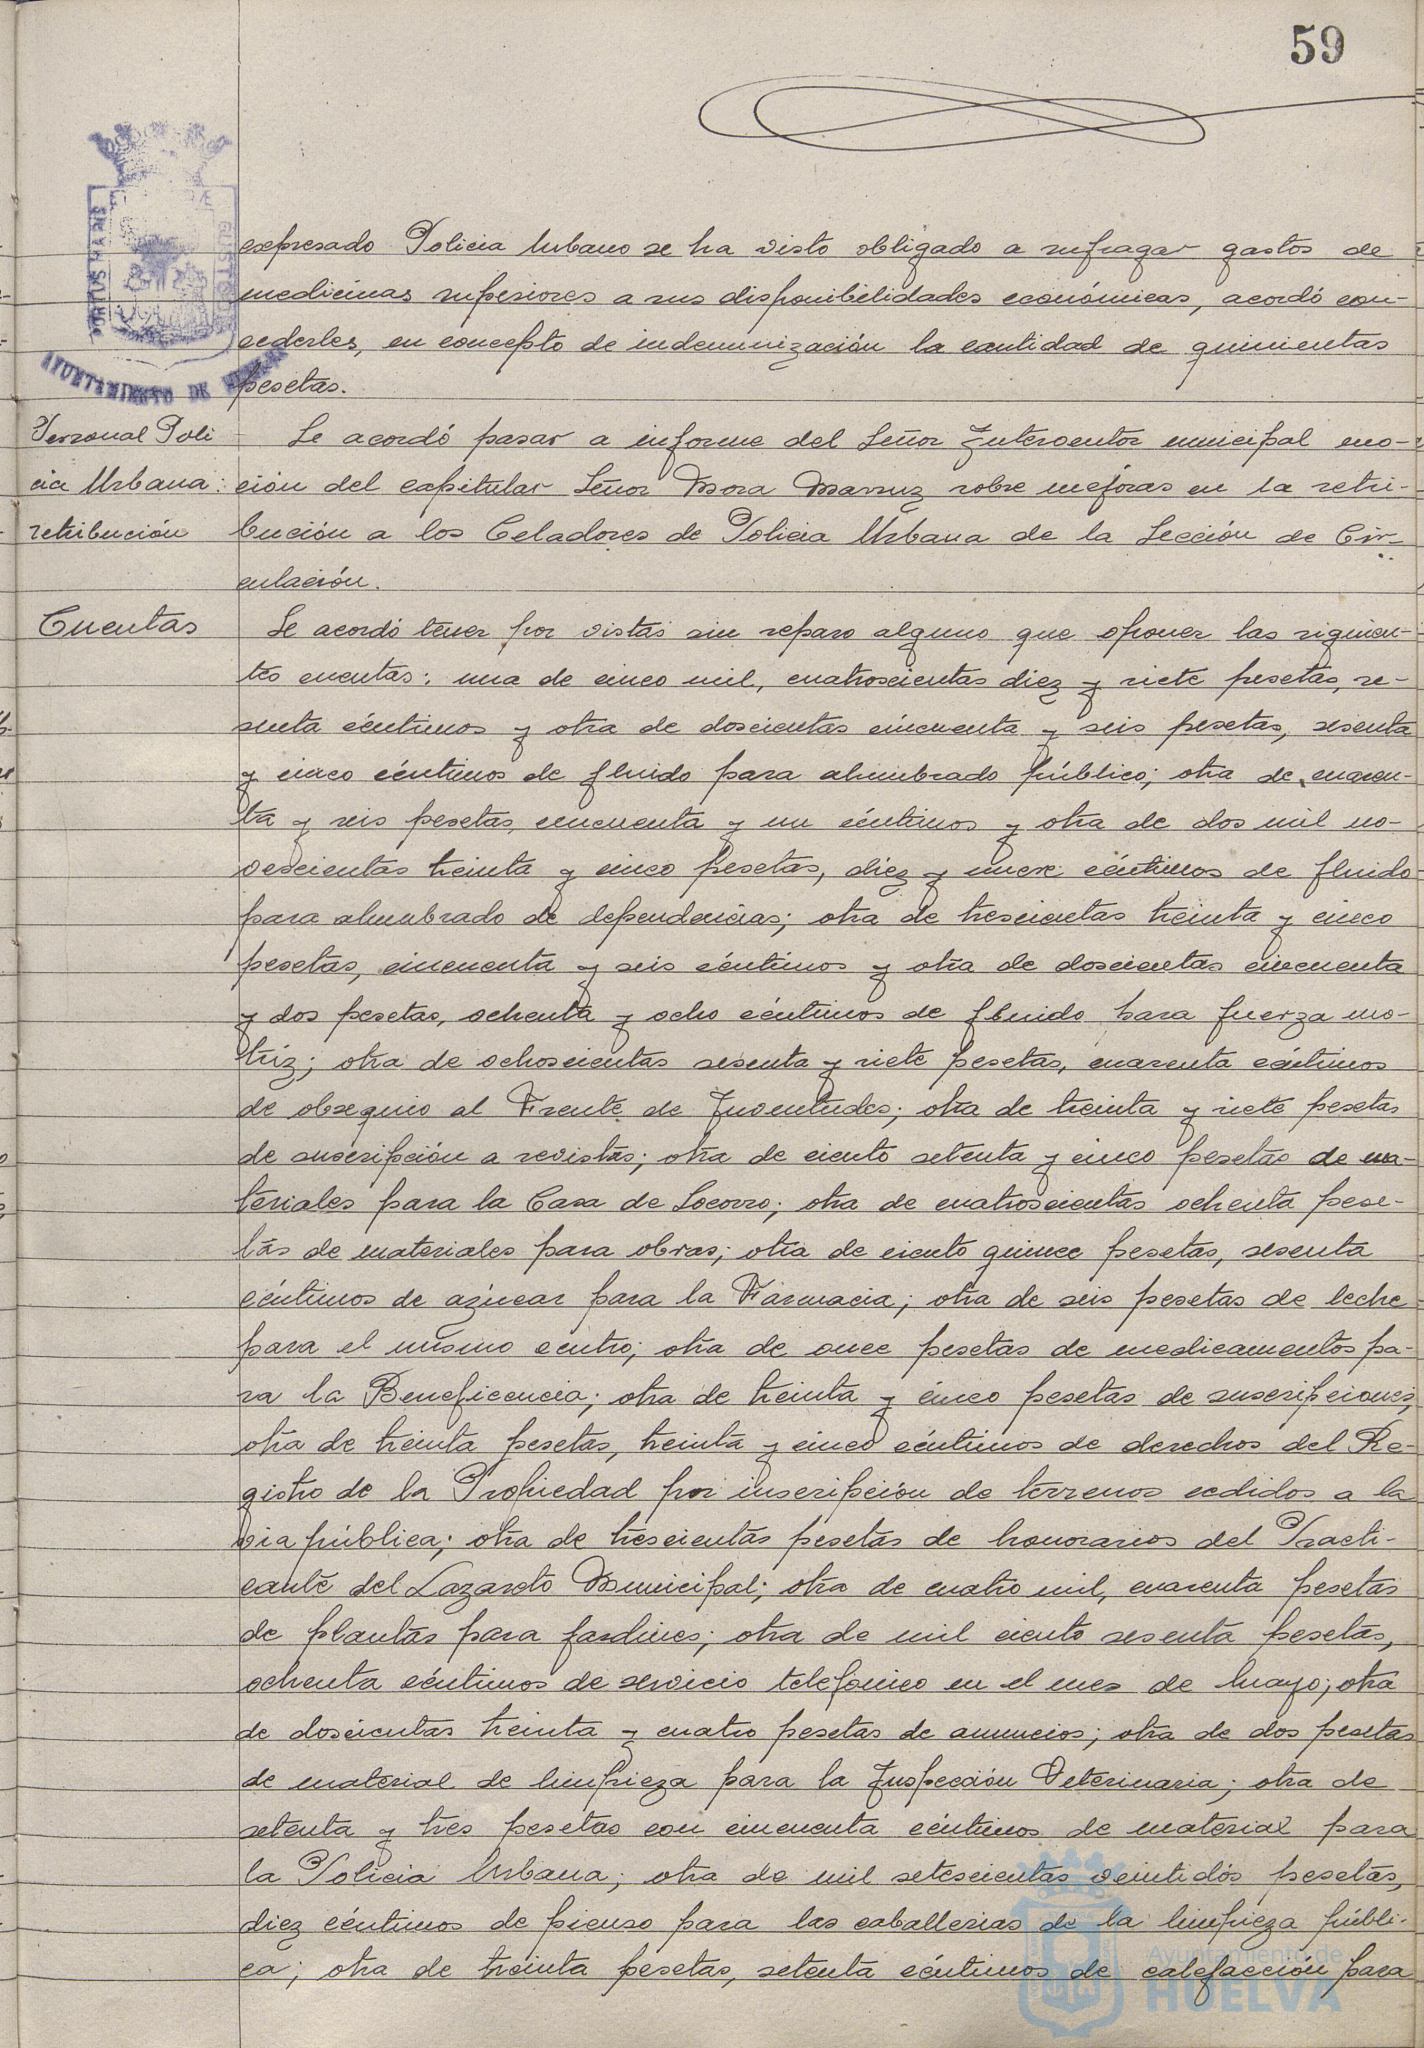 59
PORTUS MARIS
CUSTODIA
AYUNTAMIENTO DE HUELVA
expresado Policia Urbano se ha visto obligado a sufragar gastos de
medicinas superiores a sus disponibilidades económicas, acordó con-
cederles, en concepto de indemnización la cantidad de quinientas
pesetas.
Personal Poli
cia Urbana:
retribución
Se acordó pasar a informe del Señor Interventor municipal mo-
ción del capitular Señor Mora Marruz sobre mejoras en la retri-
bución a los Celadores de Policia Urbana de la Sección de Cir-
culación.
Cuentas
Se acordó tener por vistas sin reparo alguno que oponer las siguien-
tes cuentas: una de cinco mil, cuatroscientas diez y siete pesetas, se-
senta céntimos y otra de doscientas cincuenta y seis pesetas, sesenta
y cinco céntimos de fluido para alumbrado público; otra de cuaren-
ta y seis pesetas, cincuenta y un céntimos y otra de dos mil no-
vescientas treinta y cinco pesetas, diez y nueve céntimos de fluido
para alumbrado de dependencias; otra de trescientas treinta y cinco
pesetas, cincuenta y seis céntimos y otra de doscientas cincuenta
y dos pesetas, ochenta y ocho céntimos de fluido para fuerza mo-
triz; otra de ochoscientas sesenta y siete pesetas, cuarenta céntimos
de obsequio al Frente de Juventudes; otra de treinta y siete pesetas
de suscripción a revistas; otra de ciento setenta y cinco pesetas de ma-
teriales para la Casa de Socorro; otra de cuatroscientas ochenta pese-
tas de materiales para obras; otra de ciento quince pesetas, sesenta
céntimos de azúcar para la Farmacia; otra de seis pesetas de leche
para el mismo centro; otra de once pesetas de medicamentos pa-
ra la Beneficencia; otra de treinta y cinco pesetas de suscripciones;
otra de treinta pesetas, treinta y cinco céntimos de derechos del Re-
gistro de la Propiedad por inscripción de terrenos cedidos a la
via pública; otra de trescientas pesetas de honorarios del Practi-
cante del Lazareto Municipal; otra de cuatro mil, cuarenta pesetas
de plantas para jardines; otra de mil ciento sesenta pesetas,
ochenta céntimos de servicio telefónico en el mes de mayo; otra
de doscientas treinta y cuatro pesetas de anuncios; otra de dos pesetas
de material de limpieza para la Inspección Veterinaria; otra de
setenta y tres pesetas con cincuenta céntimos de material para
la Policia Urbana; otra de mil setescientas veintidós pesetas,
diez céntimos de pienso para las caballerias de la limpieza públi-
ca; otra de treinta pesetas, setenta céntimos de calefacción para
Ayuntamiento de
HUELVA